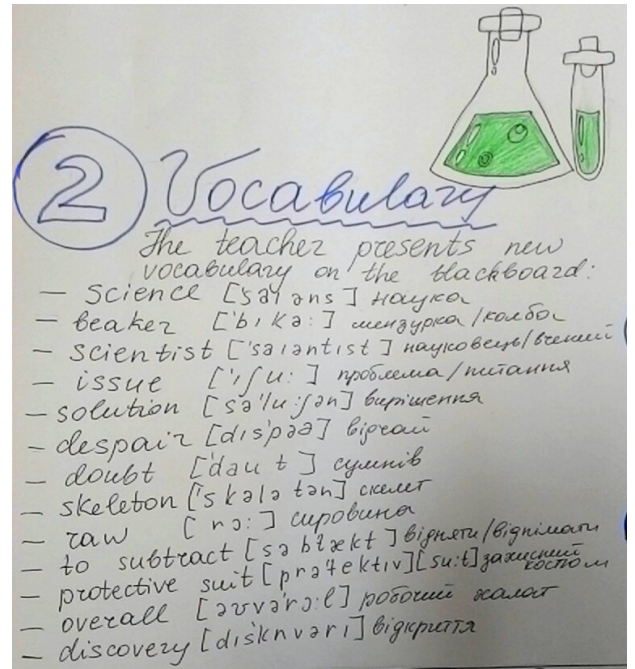 2 Vocabulary
The teacher presents new
vocabulary on the blackboard:
– science ['saɪəns] наука
– beaker ['bɪkə:] мензурка/колба
– scientist ['saɪəntɪst] науковець/вчений
– issue ['ɪʃu:] проблема/питання
– solution [sə'lu:ʃən] вирішення
– despair [dɪs'pəə] відчай
– doubt ['daut] сумнів
– skeleton ['skələtən] скелет
– raw [rɔ:] сировина
– to subtract [səbtrækt] відняти/віднімати
– protective suit [prətektɪv][su:t] захисний костюм
– overall [əʊvərɔ:l] робочий халат
– discovery [dɪskʌvərɪ] відкриття